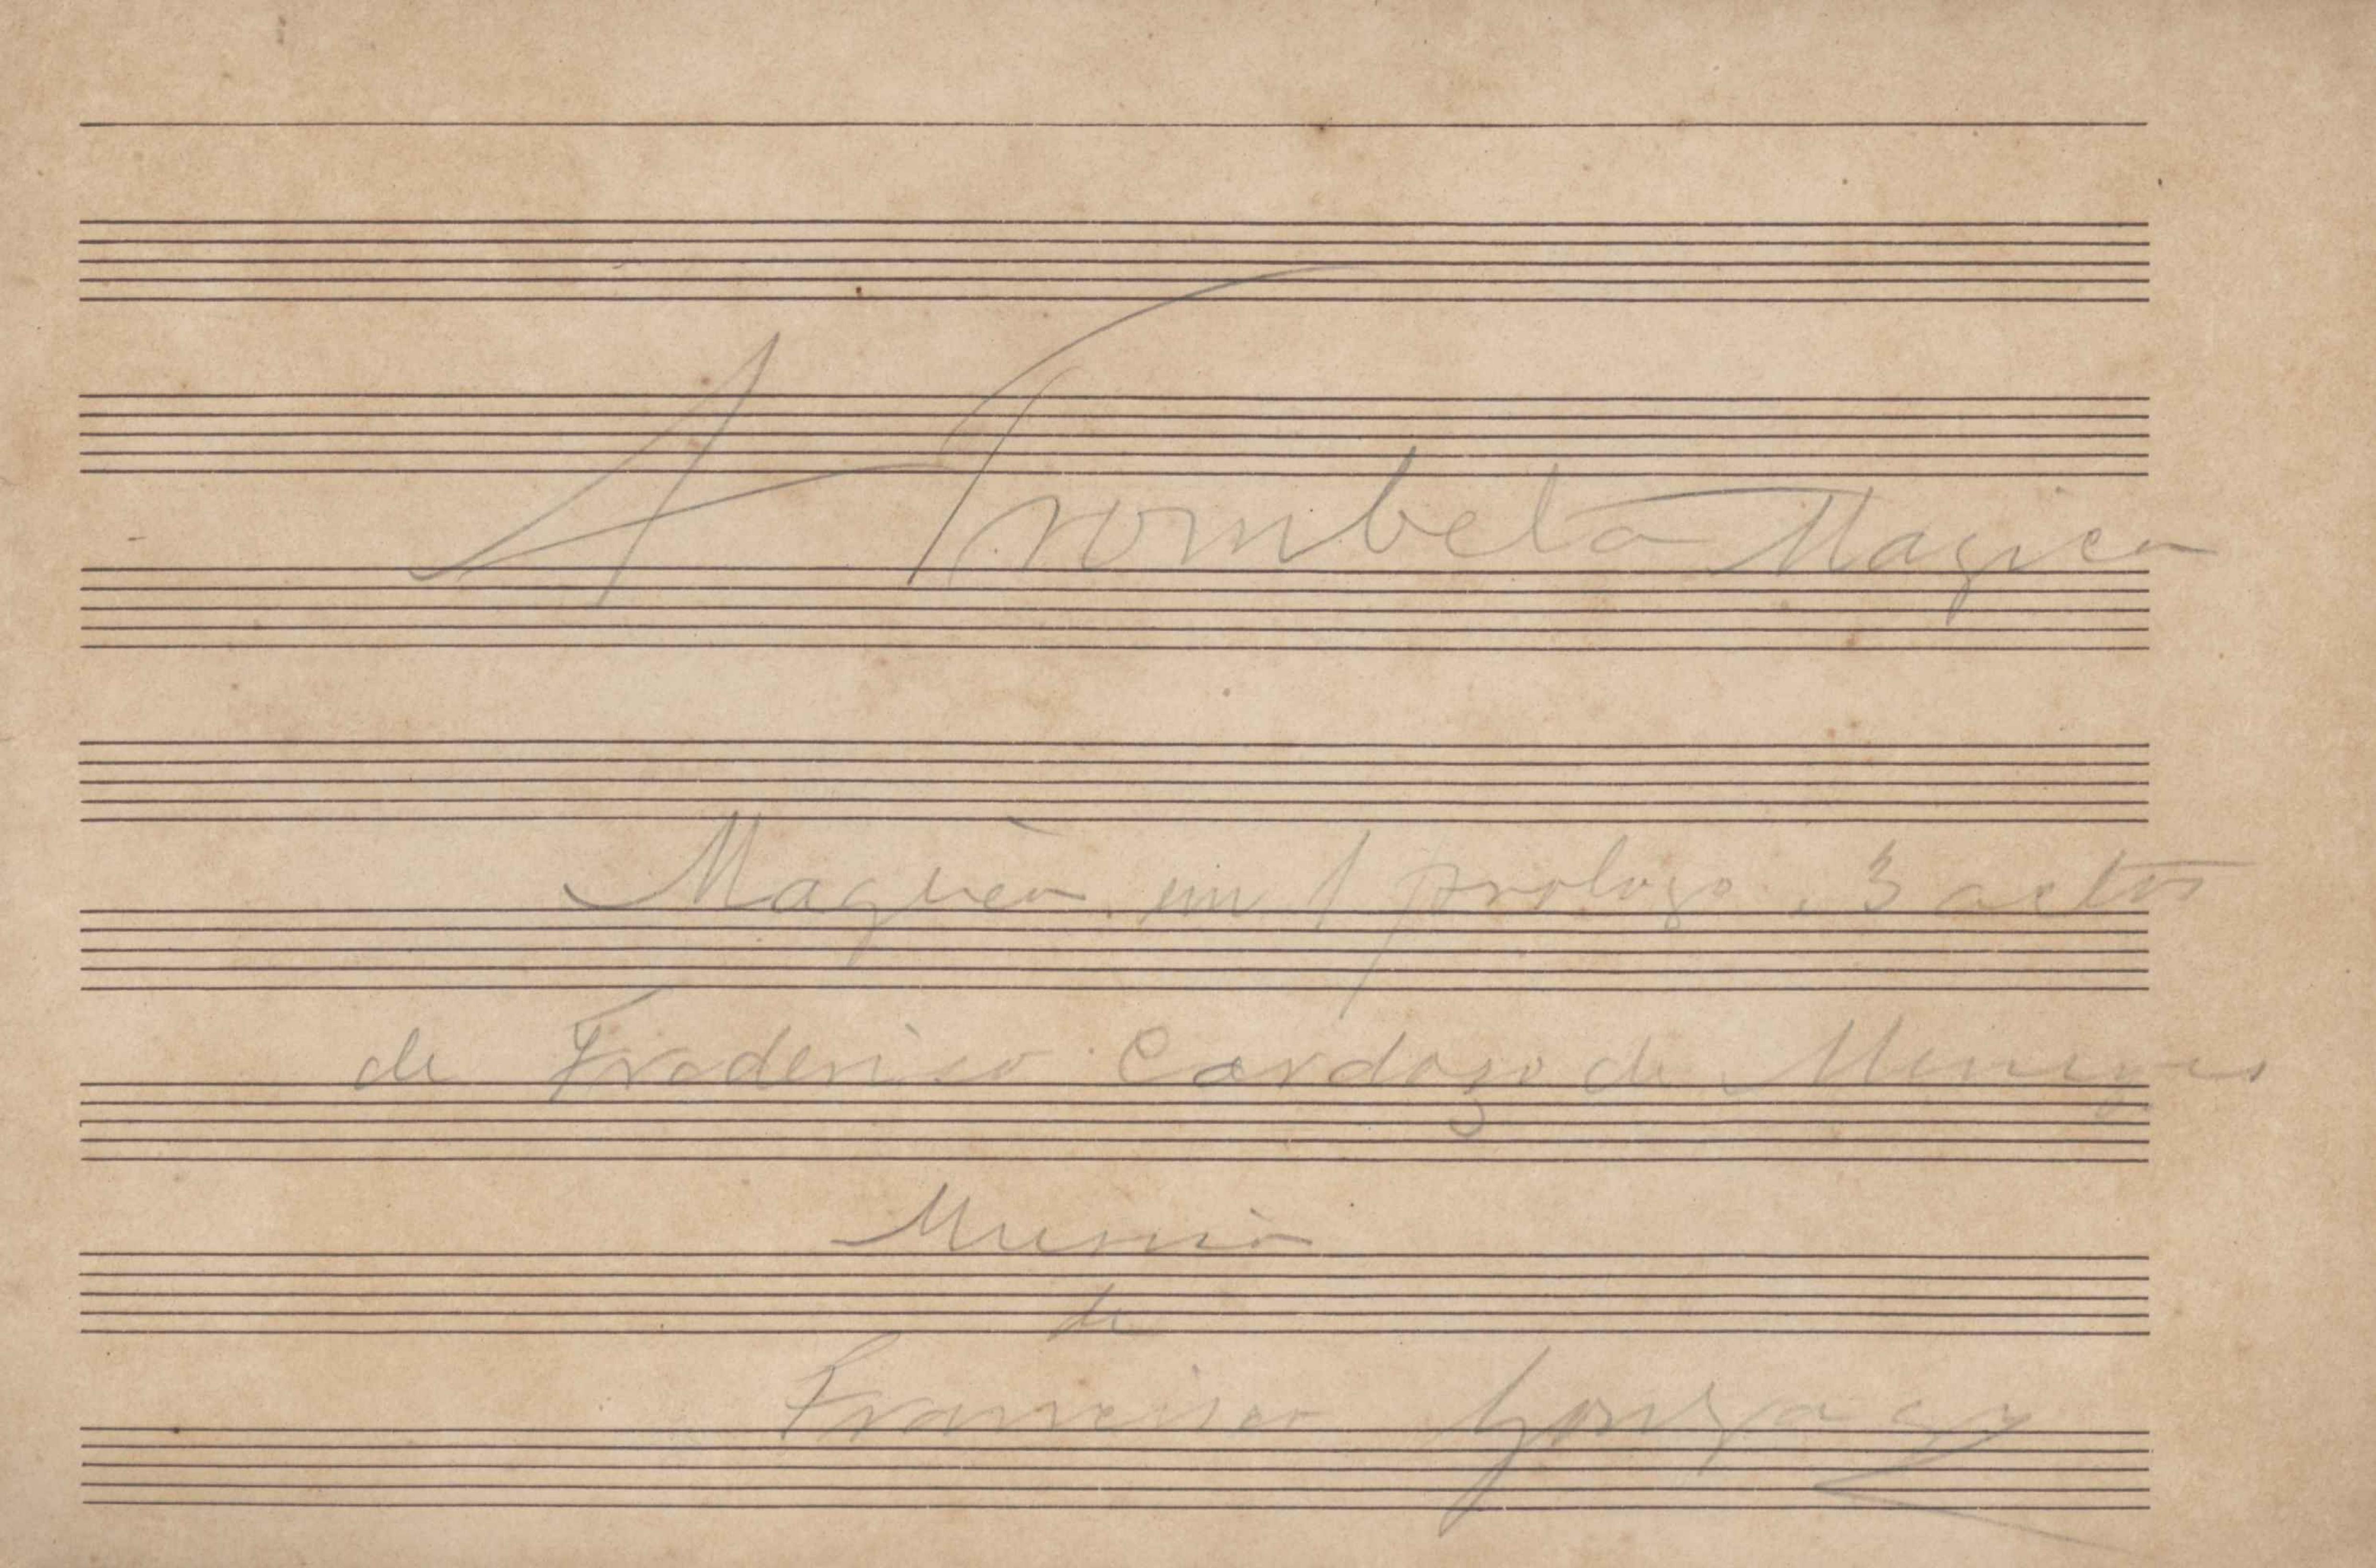 A Trombeta Magica
Magica em 1 prologo. 3 actos
de Frederico Cardozo de Menezes
Musica
de
Francisca Gonzaga